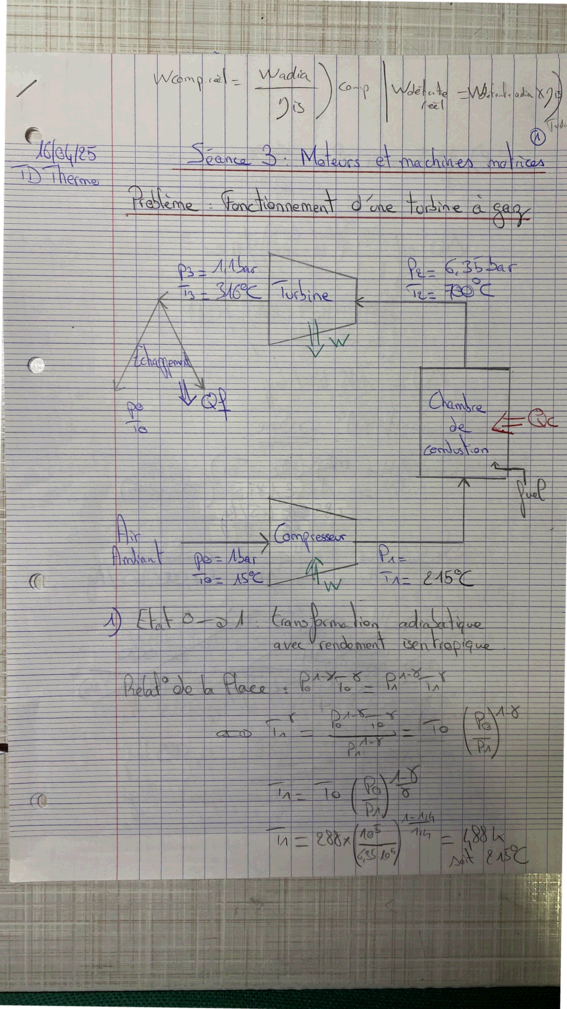 Wcomp réel = Wadia / ηis ) comp | Wdétente réel = Wdétente adia x ηis ) Turbi
①
16/04/25
TD Thermo
Séance 3 : Moteurs et machines motrices
Problème : Fonctionnement d'une turbine à gaz
P3 = 1,1bar
T3 = 316°C
Turbine
W
P2 = 6,35 bar
T2 = 700°C
Echappement
Qf
P0
T0
Chambre de combustion
Qc
fuel
Air Ambiant
P0 = 1bar
T0 = 15°C
Compresseur
W
P1 =
T1 = 215°C
1) Etat 0 → 1 : transformation adiabatique
avec rendement isentropique.
Relat° de la Place : P0^1-γ T0^γ = P1^1-γ T1^γ
<=> T1^γ = P0^1-γ T0^γ / P1^1-γ = T0 (P0/P1)^1-γ
T1 = T0 (P0/P1)^1-γ/γ
T1 = 288x(10^5/6,35.10^5)^1-1,4/1,4 = 488 K
soit 215°C